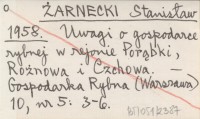 o
ŻARNECKI Stanisław
1958. Uwagi o gospodarce
rybnej w rejonie Porąbki,
Rożnowa i Czchowa.
Gospodarka Rybna (Warszawa)
10, nr 5: 3-6.